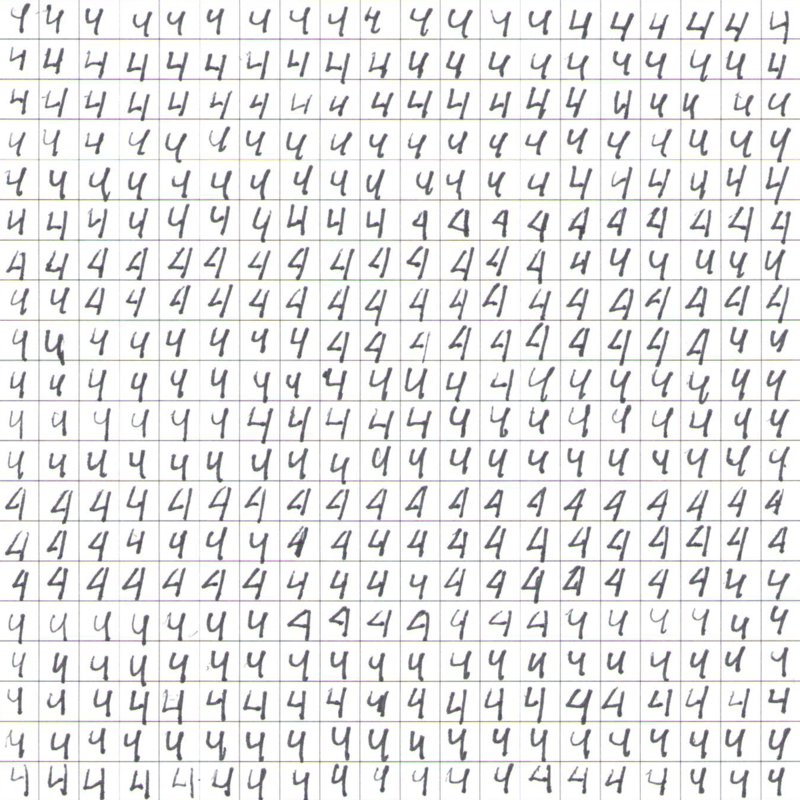 4 4 4 4 4 4 4 4 4 4 4 4 4 4 4 4 4 4 4 4
4 4 4 4 4 4 4 4 4 4 4 4 4 4 4 4 4 4 4 4
4 4 4 4 4 4 4 4 4 4 4 4 4 4 4 4 4 4 4 4
4 4 4 4 4 4 4 4 4 4 4 4 4 4 4 4 4 4 4 4
4 4 4 4 4 4 4 4 4 4 4 4 4 4 4 4 4 4 4 4
4 4 4 4 4 4 4 4 4 4 4 4 4 4 4 4 4 4 4 4
4 4 4 4 4 4 4 4 4 4 4 4 4 4 4 4 4 4 4 4
4 4 4 4 4 4 4 4 4 4 4 4 4 4 4 4 4 4 4 4
4 4 4 4 4 4 4 4 4 4 4 4 4 4 4 4 4 4 4 4
4 4 4 4 4 4 4 4 4 4 4 4 4 4 4 4 4 4 4 4
4 4 4 4 4 4 4 4 4 4 4 4 4 4 4 4 4 4 4 4
4 4 4 4 4 4 4 4 4 4 4 4 4 4 4 4 4 4 4 4
4 4 4 4 4 4 4 4 4 4 4 4 4 4 4 4 4 4 4 4
4 4 4 4 4 4 4 4 4 4 4 4 4 4 4 4 4 4 4 4
4 4 4 4 4 4 4 4 4 4 4 4 4 4 4 4 4 4 4 4
4 4 4 4 4 4 4 4 4 4 4 4 4 4 4 4 4 4 4 4
4 4 4 4 4 4 4 4 4 4 4 4 4 4 4 4 4 4 4 4
4 4 4 4 4 4 4 4 4 4 4 4 4 4 4 4 4 4 4 4
4 4 4 4 4 4 4 4 4 4 4 4 4 4 4 4 4 4 4 4
4 4 4 4 4 4 4 4 4 4 4 4 4 4 4 4 4 4 4 4